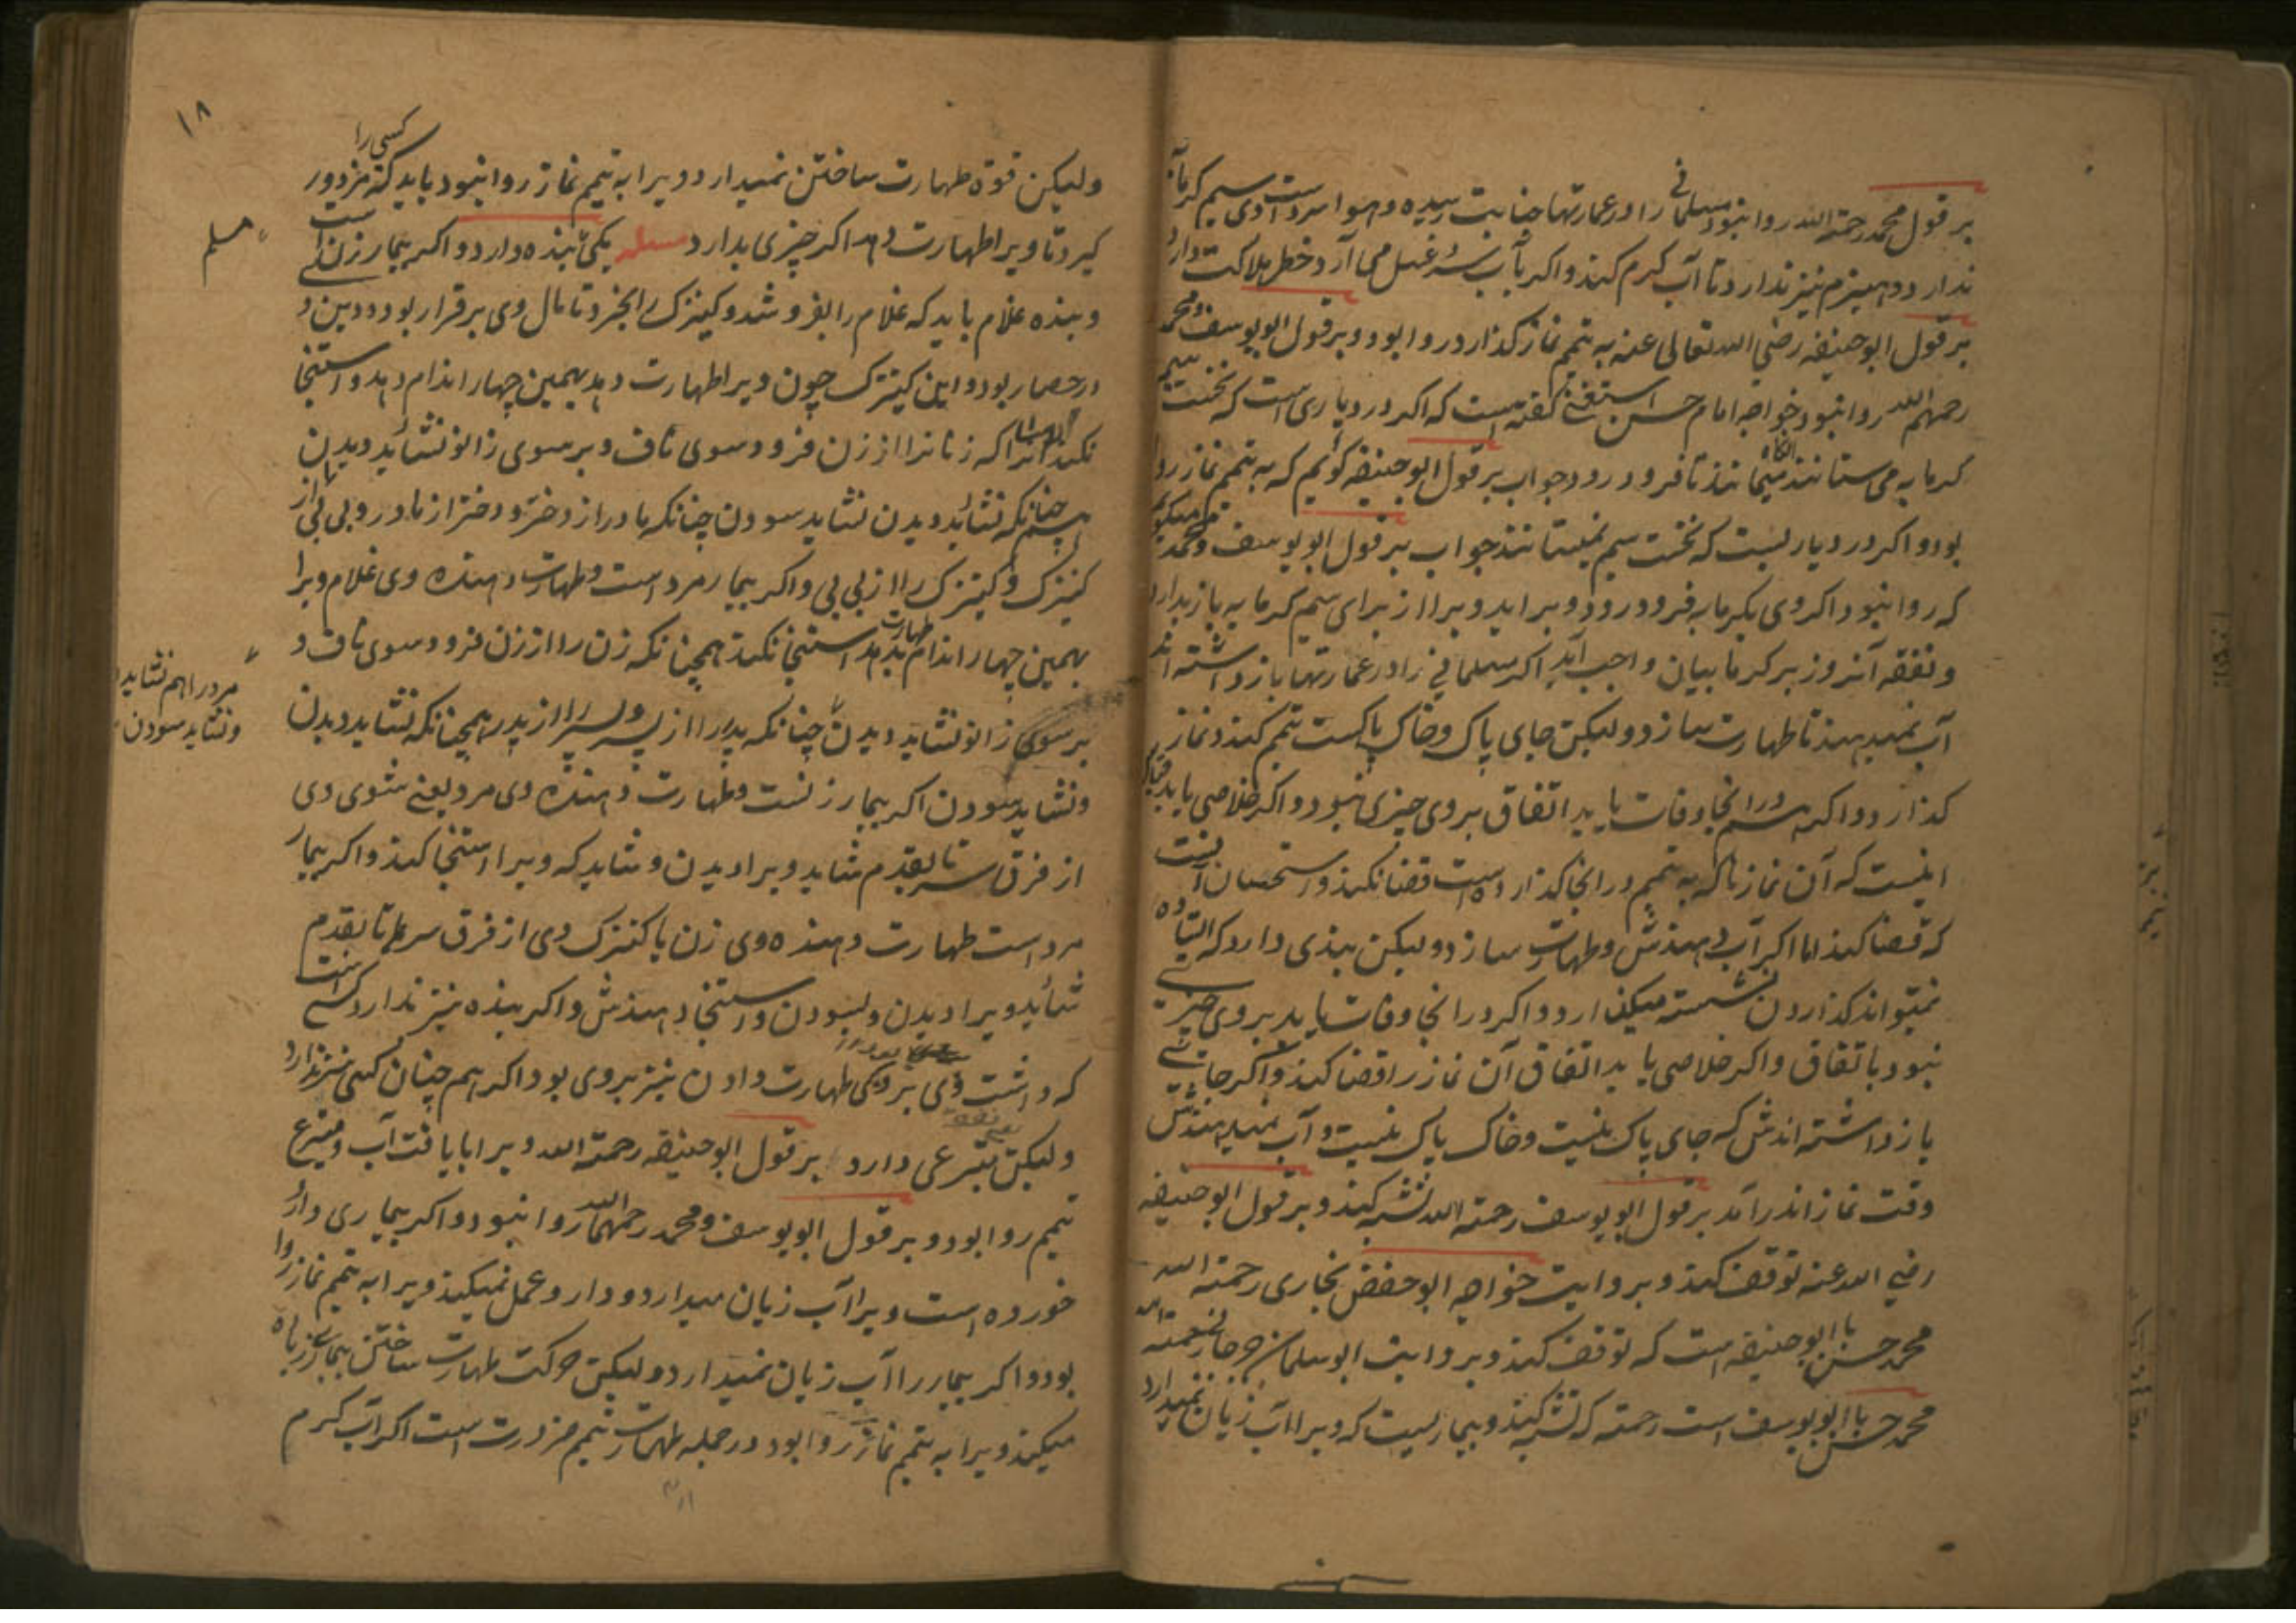 بر قول محمد رحمة الله روا نبود مسلمانی را در عمارتها جنابت رسیده و هوا سرد است و سیم کرمابه
ندارد و هیزم نیز ندارد تا آب کرم کند و اکر بآب سرد غسل می آرد خطر هلاکت دارد
بر قول ابو حنیفه رضی الله تعالی عنه به تیمم نماز کذارد روا بود و بر قول ابو یوسف و محمد
رحمهم الله روا نبود خواجه امام حسن گفته است که اکر در دیاری است که نخست سیم
کرمابه می ستانند آنکاه میمانند تا فرو در رود جواب بر قول ابو حنیفه کوئیم که به تیمم نماز روا
بود و اکر در دیاریست که نخست سیم نمیستانند جواب بر قول ابو یوسف و محمد میکوئیم
که روا نبود اکر وی بکرمابه فرو در رود و براید ویرا از برای سیم کرمابه باز بدارد
و نفقه آنروز بر کرمابیان واجب آید اکر مسلمانی را در عمارتها باز داشته اند
آب نمیدهند تا طهارت سازد ولیکن جای پاک و خاک پاکست تیمم کند و نماز
کذارد و اکر هم در انجا وفات یابد اتفاق بر وی چیزی نبود و اکر خلاصی یابد قیاس
اینست که آن نمازها که به تیمم در انجا کذارده است قضا نکند و استحسان آنست
که قضا کند اما اکر آب دهندش و طهارت سازد ولیکن بندی دارد که ایستاده
نمیتواند کذاردن نشسته میکذارد و اکر در انجا وفات یابد بر وی چیزی
نبود باتفاق و اکر خلاصی یابد اتفاق آن نماز را قضا کند و اکر جائی
باز داشته اندش که جای پاک نیست و خاک پاک نیست و آب نمیدهندش
وقت نماز اندر آمد بر قول ابو یوسف رحمة الله تشبه کند و بر قول ابو حنیفه
رضی الله عنه توقف کند و بروایت خواجه ابو حفص بخاری رحمة الله
محمد حسن با ابو حنیفه است که توقف کند و بروایت ابو سلیمان رحمة الله
محمد حسن با ابو یوسف است رحمة که تشبه کند و بیماریست که ویرا آب زیان نمیدارد
۱۸
ولیکن قوة طهارت ساختن نمیدارد ویرا به تیمم نماز روا نبود باید که کسی را مزدور
کیرد تا ویرا طهارت دهد اکر چیزی بدارد مسئله یکی بنده دارد و اکر بیمار زن است
مسلم
و بنده غلام باید که غلام را بفروشد و کنیزک را بخرد تا مال وی برقرار بود و دین
در حصار بود و این کنیزک چون ویرا طهارت دهد همین چهار اندام دهد و استنجا
نکند زیرا که زنانرا از زن فرود سوی ناف و بر سوی زانو نشاید دیدن
همچنانکه نشاید دیدن نشاید سودن چنانکه مادر از دختر و دختر از مادر و بی بی از
کنیزک و کنیزک را از بی بی و اکر بیمار مرد است و طهارت دهنده وی غلام ویرا
همین چهار اندام طهارت بدهد استنجا نکند همچنانکه زن را از زن فرود سوی ناف و
بر سوی زانو نشاید دیدن چنانکه پدر را از پسر و پسر را از پدر همچنانکه نشاید دیدن
مرد را هم نشاید
و نشاید سودن
و نشاید سودن اکر بیمار زنست و طهارت دهنده وی مرد یعنی شوی وی
از فرق سر تا بقدم شاید ویرا دیدن و شاید که ویرا استنجا کند و اکر بیمار
مرد است طهارت دهنده وی زن یا کنیزک وی از فرق سر تا بقدم
شاید ویرا دیدن و بسودن و استنجا دهندش و اکر بنده نیز ندارد کسی است
که داشت وی بر ویکی طهارت دادن نیز بر وی بود اکر هم چنان کسی نیز ندارد
ولیکن متبرعی دارد بر قول ابو حنیفه رحمة الله ویرا با یافت آب و متبرع
تیمم روا بود و بر قول ابو یوسف و محمد رحمهما الله روا نبود و اکر بیماری دارو
خورده است ویرا آب زیان میدارد و دارو عمل نمیکند ویرا به تیمم نماز روا
بود و اکر بیمار را آب زیان نمیدارد ولیکن حرکت طهارت ساختن بیماری زیاده
میکند ویرا به تیمم نماز روا بود در جمله طهارت تیمم ضرورت است اکر آب کرم